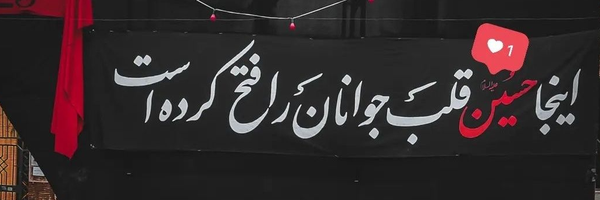 اینجا حسین علیه‌السلام قلب جوانان را فتح کرده است
1